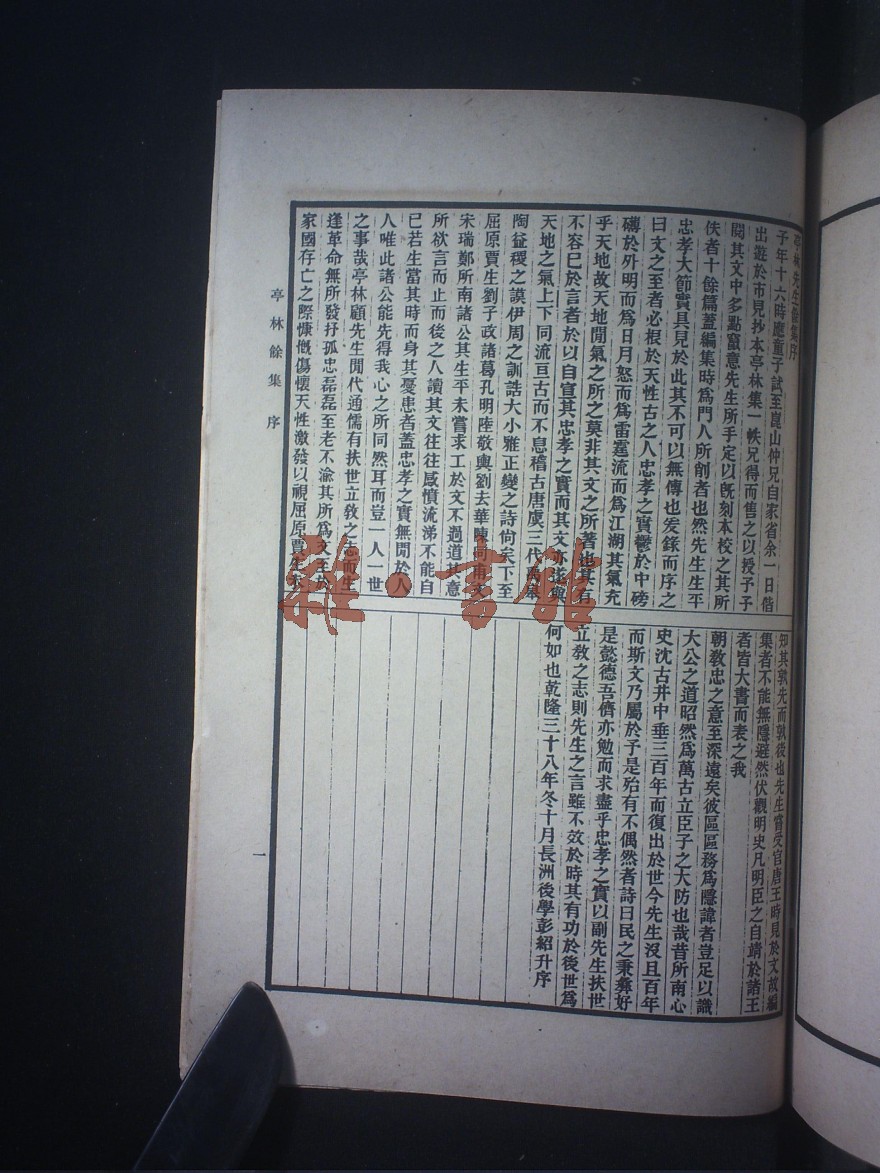 亭林先生餘集序
予年十六時應童子試至崑山仲兄自家省余一日偕
出遊於市見抄本亭林集一帙兄得而售之以授予予
閱其文中多點竄意先生所手定以旣刻本校之其所
佚者十餘篇蓋編集時爲門人所削者也然先生生平
忠孝大節實具見於此其不可以無傳也爰錄而序之
曰文之至者必根於天性古之人忠孝之實鬱於中磅
礴於外明而爲日月怒而爲雷霆流而爲江湖其氣充
乎天地故天地閒氣之所之莫非其文之所著也其有
不容已於言者於以自宣其忠孝之實而其文亦遂與
天地之氣上下同流亘古而不息稽古唐虞三代禹皋
陶益稷之謨伊周之訓誥大小雅正變之詩尙矣下至
屈原賈生劉子政諸葛孔明陸敬輿劉去華陳同甫文
宋瑞鄭所南諸公其生平未嘗求工於文不過道其意
所欲言而止而後之人讀其文往往感憤流涕不能自
已若生當其時而身其憂患者蓋忠孝之實無閒於人
人唯此諸公能先得我心之所同然耳而豈一人一世
之事哉亭林顧先生閒代通儒有扶世立敎之志而生
逢革命無所發抒孤忠磊磊至老不渝其所爲文至於
家國存亡之際慷慨傷懷天性激發以視屈原賈生
知其孰先而孰後也先生嘗受官唐王時見於文故編
集者不能無隱避然伏觀明史凡明臣之自靖於諸王
者皆大書而表之我
朝敎忠之意至深遠矣彼區區務爲隱諱者豈足以識
大公之道昭然爲萬古立臣子之大防也哉昔所南心
史沈古井中垂三百年而復出於世今先生沒且百年
而斯文乃屬於予是殆有不偶然者詩曰民之秉彝好
是懿德吾儕亦勉而求盡乎忠孝之實以副先生扶世
立敎之志則先生之言雖不效於時其有功於後世爲
何如也乾隆三十八年冬十月長洲後學彭紹升序
亭林餘集 序
一
雜·書館